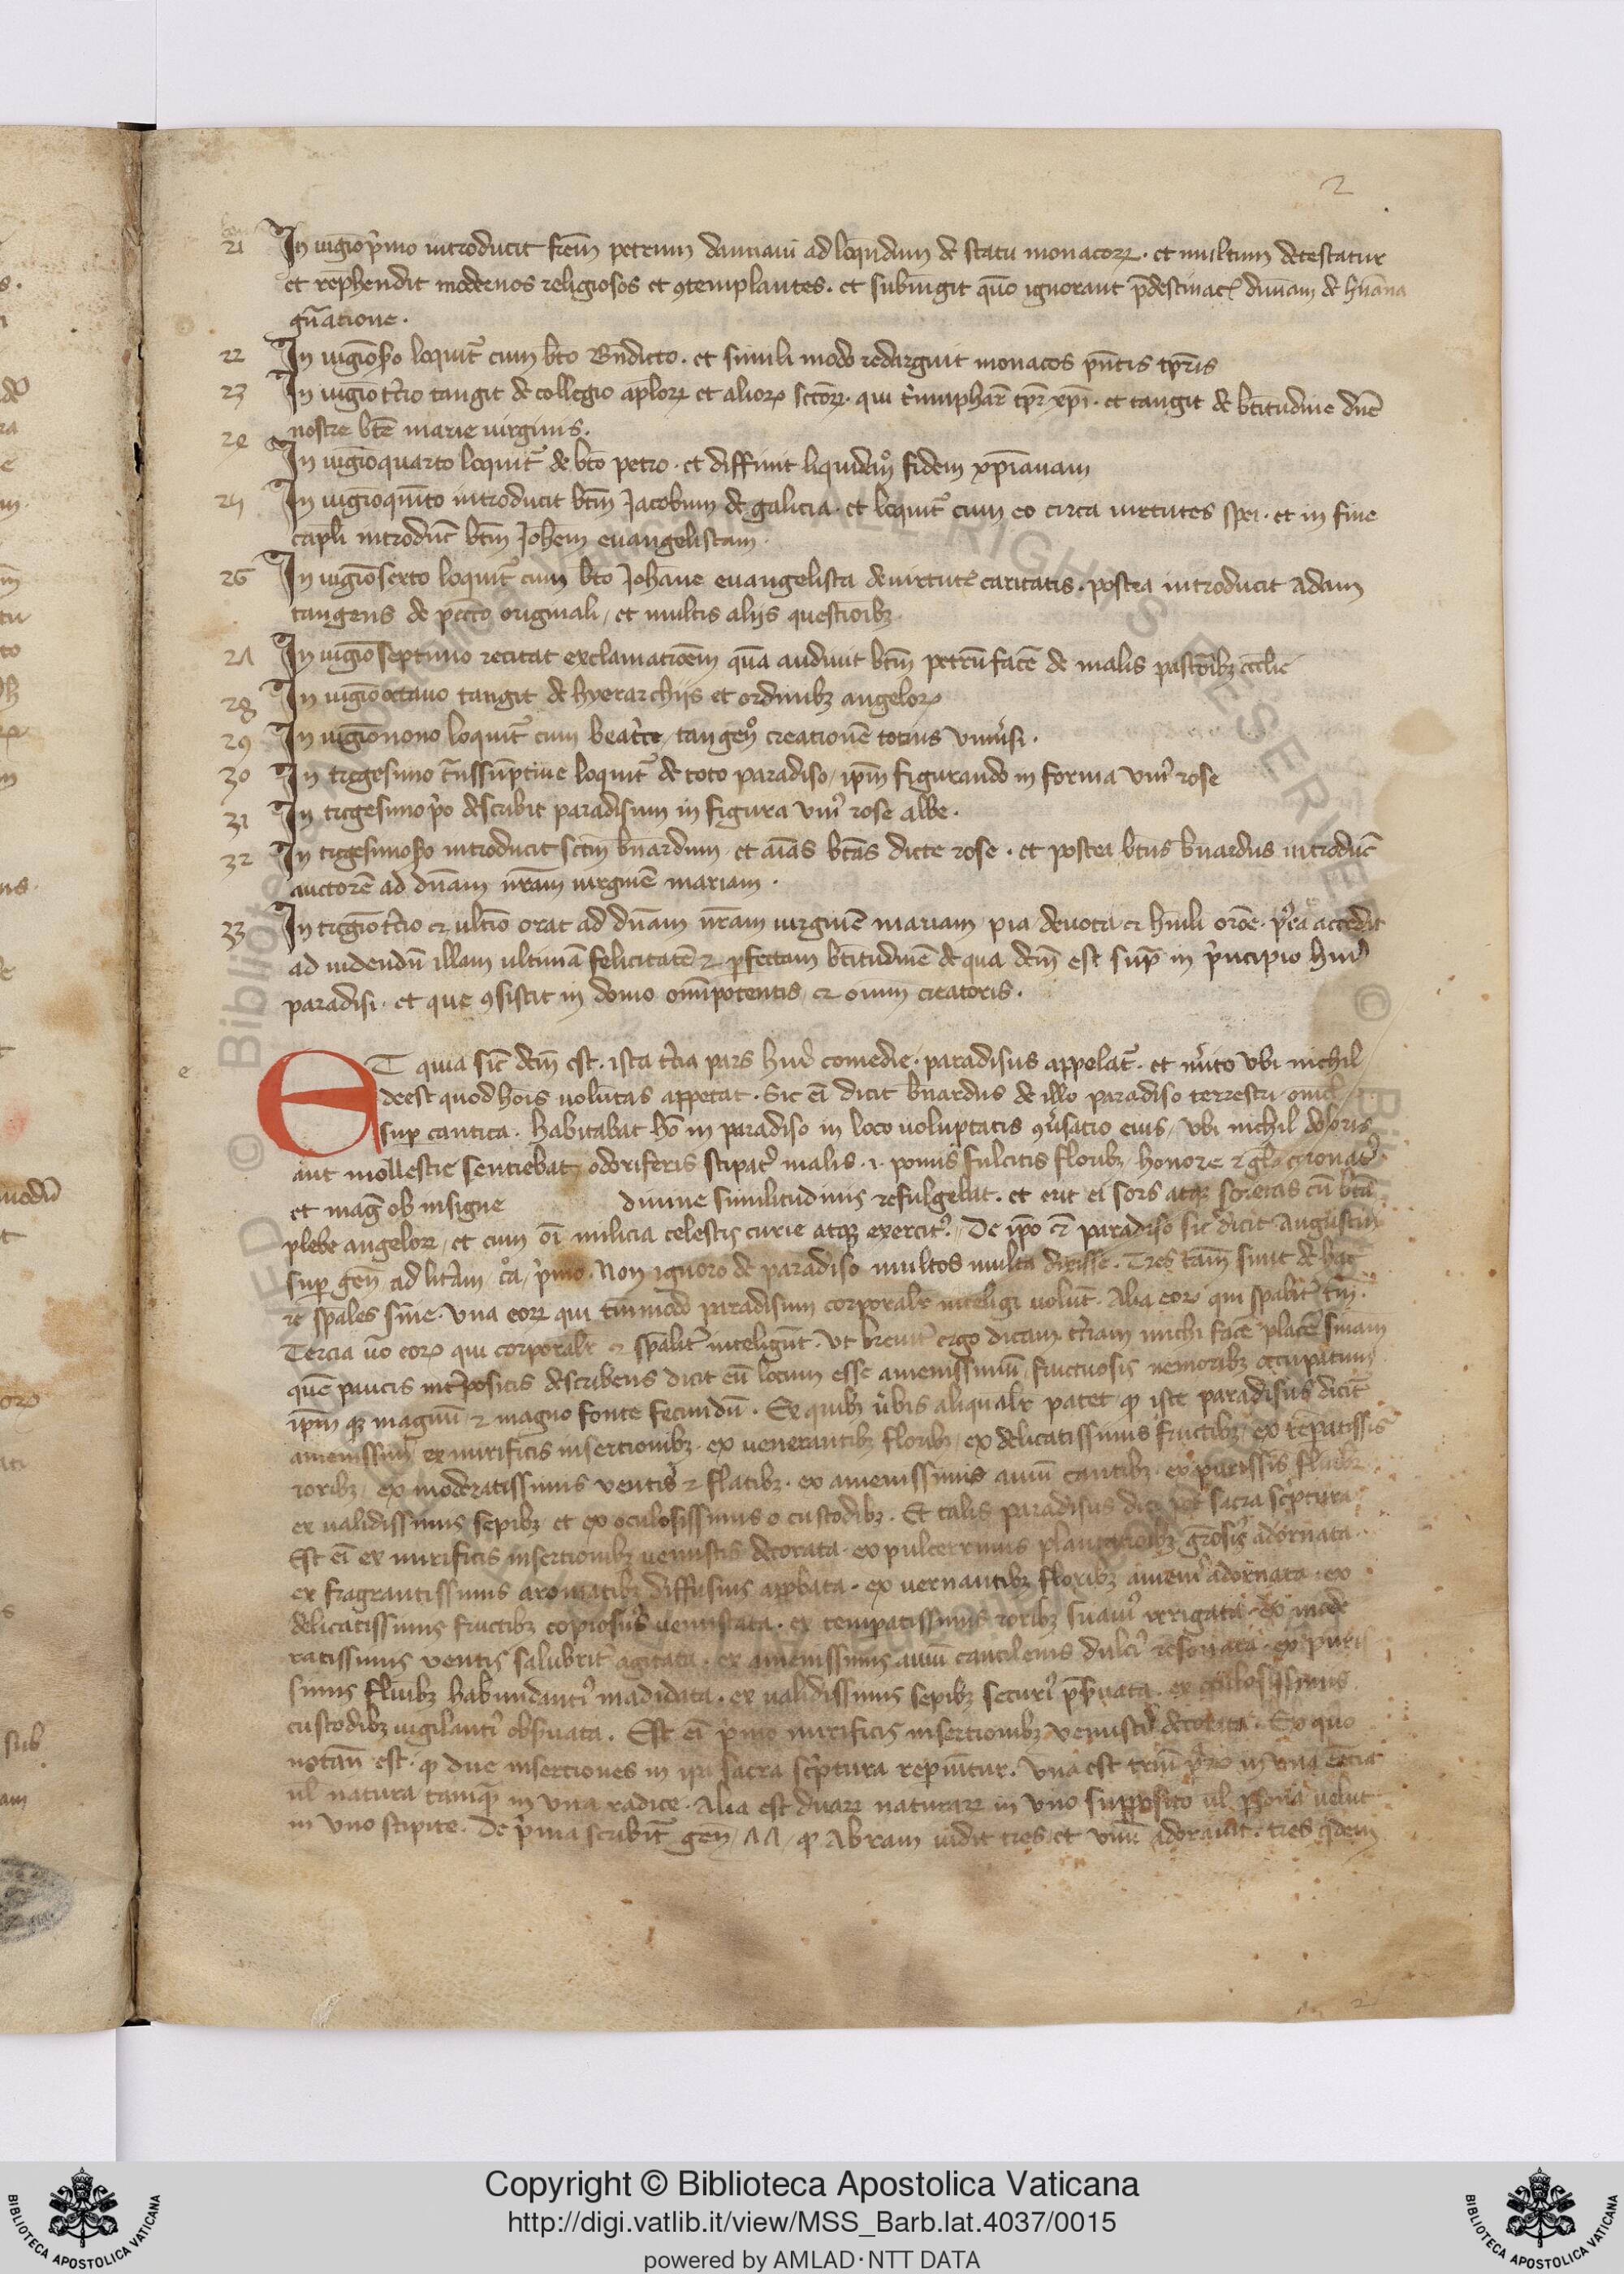 2
21 In uigiopͥmo introducit frēm petrum damiani ad loqn̄dum de statu monacorꝝ · et multum detestatur
et rep̄hendit modernos religiosos et ꝯtemplantes · et subiungit quō ignorant p̄destinac̄ diuinam de hūana
gn̄atione ·
22 In uigiosͦo loquit᷑ cum bt̄o Bn̄dicto · et simili modo redarguit monacos pn̄tis tp̄ris
23 In uigiotc̄io tangit de collegio apl̄orꝝ et aliorꝝ sct̄orꝝ · qui tͥumphar̄ tp̄r xp̄i · et tangit de bt̄itudine dn̄e
nostre bt̄e marie uirginis ·
24 In uigioquarto loquit᷑ de bt̄o petro · et diffinit liquidem̊ fidem xp̄ianam
25 In uigioquīto introducit bt̄m Jacobum de galicia · et loquit᷑ cum eo circa uirtutes spei · et in fine
capl̄i introduc̄ bt̄m Joh̄em euangelistam ·
26 In uigiosexto loquit᷑ cum bt̄o Joh̄anne euangelista de uirtute caritatis · postea introducit Adam
tangens de pcc̄to originali / et multis alijs questioībꝫ
27 In uigioseptimo recitat exclamatiōem quā audiuit bt̄m petrū facē de malis pastōibꝫ eccl̄ie
28 In uigiooctauo tangit de hyerarchijs et ordinibꝫ angelorꝝ
29 In uigionono loquit᷑ cum beatͥce / tangen̊ creationē totius Vniuͥsi ·
30 In trigesimo tn̄ssūptiue loquit᷑ de toto paradiso / ip̄m figurando in forma Vniꝰ rose
31 In trigesimopͦo describit paradisum in figura Vniꝰ rose albe ·
32 In trigesimosͦo introducit sct̄m bn̄ardum · et aīas bt̄as dicte rose · et postea bt̄us bn̄ardus introduc̄
auctorē ad dn̄am nr̄am uirginē mariam ·
33 In trigiotc̄io et ultīo orat ad dn̄am nr̄am uirginē mariam / pia / deuota / et hūili orōe · pͦea accedit
ad uidendū illam ultimā felicitatē et ꝑfectam bt̄itudinē de qua dc̄m est supͣ in pͥncipio huiꝰ
paradisi · et que ꝯsistit in domo omīpotentis / et oīum creatoris ·
e ET quia sic̄ dc̄m est · ista tc̄ia pars huiꝰ comedie · paradisus appelat᷑ · et mͥito Vbi nichil
deest quod hōis uolūtas appetat · Sic ei̅ dicit bn̄ardus de illo paradiso terrestri
suꝑ cantica · habitabat ho̅ in paradiso in loco uoluptatis ꝯuͥsatio eius / Vbi nichil doloris
aut mollestie sentiebat odoriferis stipatꝰ malis · i · pomis fulcitis floribꝫ / honore et gl̄a coronatꝰ ·
et mag̅ ob insigne diuine similitudinis refulgebat · et erit ei sors atqꝫ societas cū bt̄a
plebe angelorꝝ / et cum oi̅ milicia celestis curie atqꝫ exercitꝰ / De ip̄o et̄ paradiso sic dicit Augustinꝰ
suꝑ gen̄ ad litͣam / cͦa / pͥmo · Non ignoro de paradiso multos multa dixisse · Tres tam̄ sunt de hac
re spāles sn̄ie · Vna eorꝝ qui tm̄modo paradisum corporalr̄ inteligi uolūt · Alia eorꝝ qui sp̄ualit᷑ tm̄ ·
Tercia uͦo eorꝝ qui corporalr̄ et sp̄ualit᷑ inteligūt · Vt breuit᷑ ergo dicam tc̄iam michi facē placē sn̄iam
quē paucis intͥpositis describens dicit eū locum esse amenissimū / fructuosis nemoribꝫ occupatum
ip̄m qꝫ magnū et magno fonte fecundū · Ex quibꝫ uͥbis aliqualr̄ patet ꝙ iste paradisus dicit᷑
amenissimꝰ ex mirificis insertionibꝫ · ex uenerantibꝫ floribꝫ / ex delicatissimis fructibꝫ / ex tēpatissīs
roribꝫ / ex moderatissimis ventis et flatibꝫ · ex amenissimis auiū cantibꝫ · ex purissīs fluuibꝫ
ex ualidissimis sepibꝫ et ex oculosissimis o custodibꝫ · Et talis paradisus dici pōt sacra scͥptura ·
Est ei̅ ex mirificis insertionibꝫ uenustis decorata · ex pulcerrimis plantarioibꝫ grōsis adornata ·
ex fragrantissimis aromatibꝫ diffusius aꝓbata · ex uernantibꝫ floribꝫ ameniꝰ adornata · ex
delicatissimis fructibꝫ copiosiꝰ uenustata · ex tempatissimis roribꝫ suauiꝰ irrigata · ex mode
ratissimis ventis salubrit᷑ agitata · ex amenissimis auiū cantilenis dulciꝰ resonata · ex puris
simis fluuibꝫ habundantiꝰ madidata · ex ualidissimis sepibꝫ securiꝰ p̄ẜuata · ex oculosissimis
custodibꝫ uigilantiꝰ obẜuata · Est ei̅ pͥmo mirificis insertionibꝫ venustiꝰ decorata · Ex quo
notan̄ est · ꝙ due insertiones in ip̄a sacra scͥptura reperiūtur · Vna est triū in una
ul̄ natura tamqͣꝫ in Vna radice · Alia est duarꝝ naturarꝝ in Vno supposito ul̄ ꝑsona uelut
in Vno stipite · De pͥma scribit᷑ gen̄ / ꝙ Abraam uidit tres et Vnū adorauit · tres
Copyright © Biblioteca Apostolica Vaticana
http://digi.vatlib.it/view/MSS_Barb.lat.4037/0015
powered by AMLAD·NTT DATA